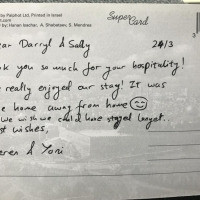 by Palphot Ltd. Printed in Israel
by: Hanan Isachar, A. Shabataev, S. Mendrea
Super
Card
ear Darryl & Sally
24/3
k you so much for your hospitality!
really enjoyed our stay! It was
e home away from home ☺
we wish we could have stayed longer...
st wishes,
& Yoni
3